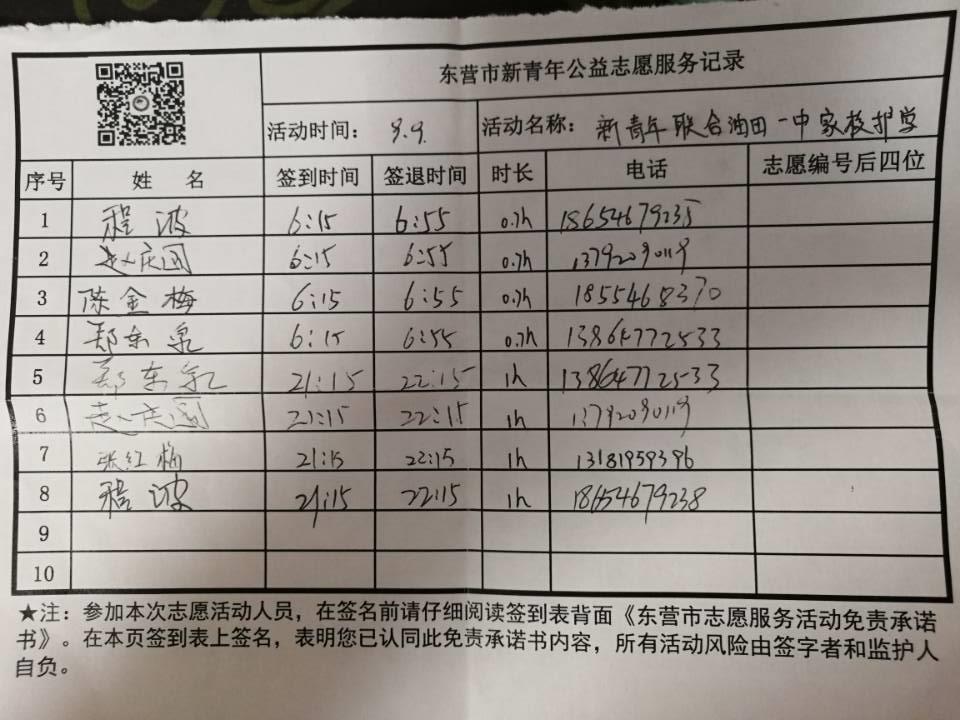 东营市新青年公益志愿服务记录
活动时间： 9.9. 活动名称： 新青年联合油田一中家校护学
序号 姓 名 签到时间 签退时间 时长 电话 志愿编号后四位
1 程波 6:15 6:55 0.7h
2 赵庆国 6:15 6:55 0.7h 13792090119
3 陈金梅 6:15 6:55 0.7h 18554688370
4 郑东泉 6:15 6:55 0.7h 13864772533
5 郑东泉 21:15 22:15 1h 13864772533
6 赵庆国 21:15 22:15 1h 13792090119
7 张红梅 21:15 22:15 1h 13181959396
8 程波 21:15 22:15 1h 18654679238
9
10
★注：参加本次志愿活动人员，在签名前请仔细阅读签到表背面《东营市志愿服务活动免责承诺
书》。在本页签到表上签名，表明您已认同此免责承诺书内容，所有活动风险由签字者和监护人
自负。